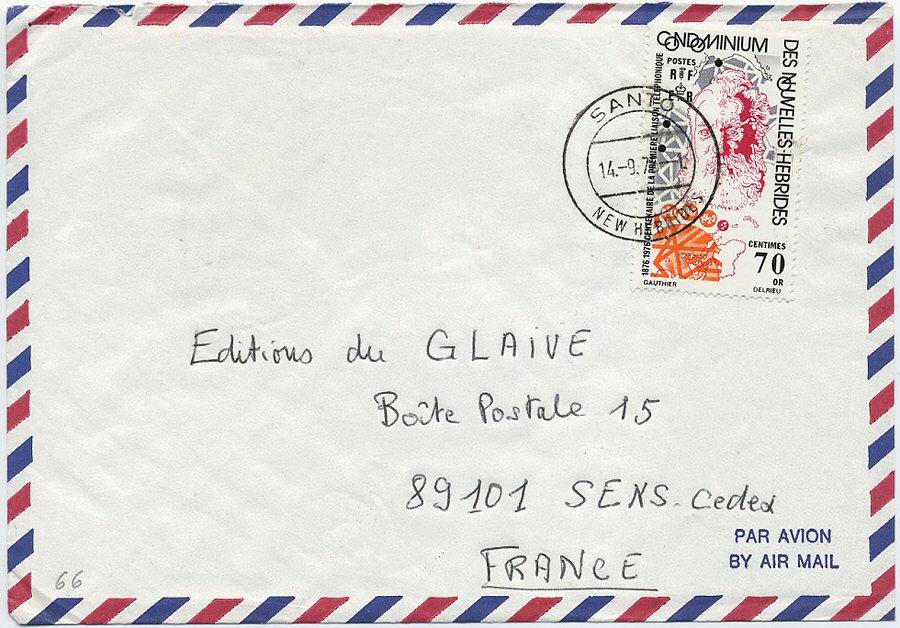 CONDOMINIUM
DES NOUVELLES-HEBRIDES
POSTES
R F
E R
1876.1976 CENTENAIRE DE LA PREMIERE LIAISON TELEPHONIQUE
CENTIMES
70
OR
GAUTHIER
DELRIEU
SANTO
14.-9.7
NEW HEBRIDES
Editions du GLAIVE
Boîte Postale 15
89101 SENS-Cedex
FRANCE
PAR AVION
BY AIR MAIL
66